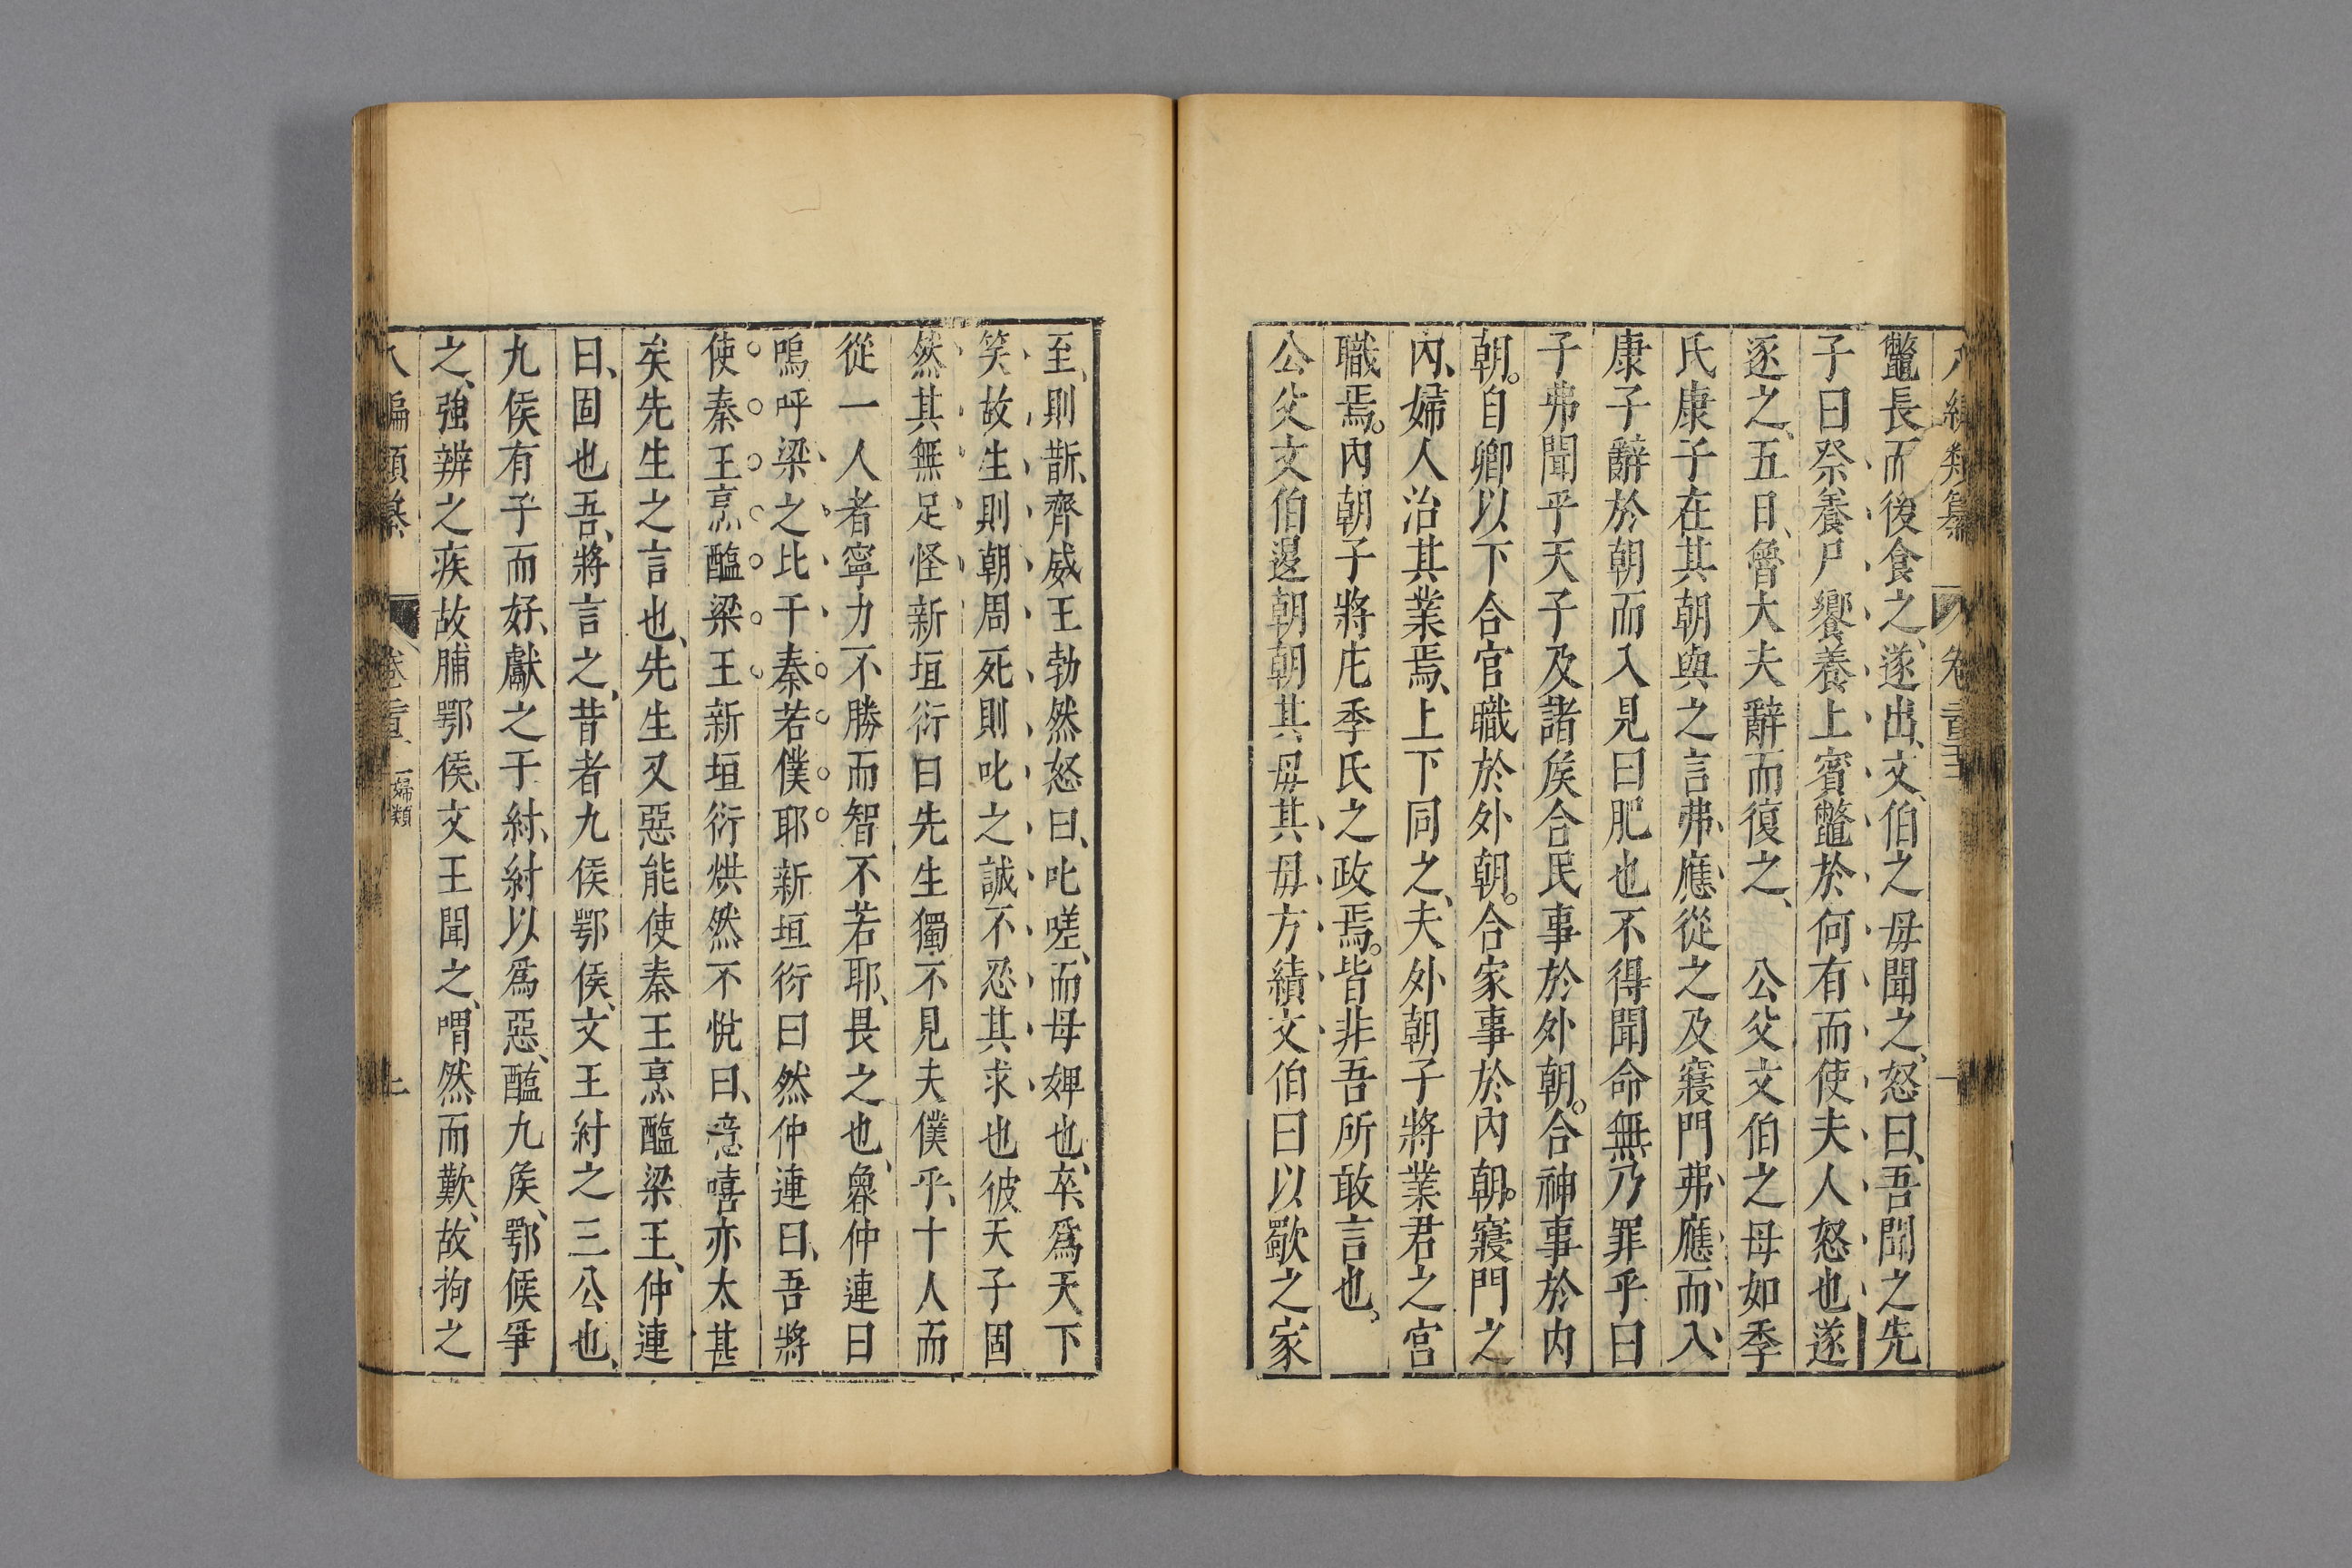 八編類纂 卷
鼈長而後食之、遂出、文伯之毋聞之、怒曰、吾聞之先
子曰祭養尸饗養上賓鼈於何有而使夫人怒也遂
逐之、五日、魯大夫辭而復之、 公父文伯之母如季
氏康子在其朝與之言弗應從之及寢門弗應而入
康子辭於朝而入見曰肥也不得聞命無乃罪乎曰
子弗聞乎天子及諸矦合民事於外朝。合神事於內
朝。自卿以下合官職於外朝。合家事於內朝。寢門之
內、婦人治其業焉、上下同之、夫外朝子將業君之官
職焉。內朝子將庀季氏之政焉。皆非吾所敢言也、
公父文伯退朝朝其毋其毋方績文伯曰以歜之家
至、則斮、齊威王勃然怒曰、叱嗟、而母婢也、卒爲天下
笑故生則朝周死則叱之誠不忍其求也彼天子固
然其無足怪新垣衍曰先生獨不見夫僕乎、十人而
從一人者寧力不勝而智不若耶、畏之也、魯仲連曰
嗚呼梁之比于秦若僕耶新垣衍曰然仲連曰、吾將
使秦王烹醢梁王新垣衍烘然不悅曰、意嘻亦太甚
矣先生之言也、先生又惡能使秦王烹醢梁王、仲連
曰、固也吾、將言之、昔者九侯鄂侯、文王紂之三公也、
九侯有子而好、獻之于紂、紂以爲惡、醢九矦、鄂候爭
之、強辨之疾故脯鄂侯、文王聞之、喟然而歎、故拘之
編類纂 卷 婦類